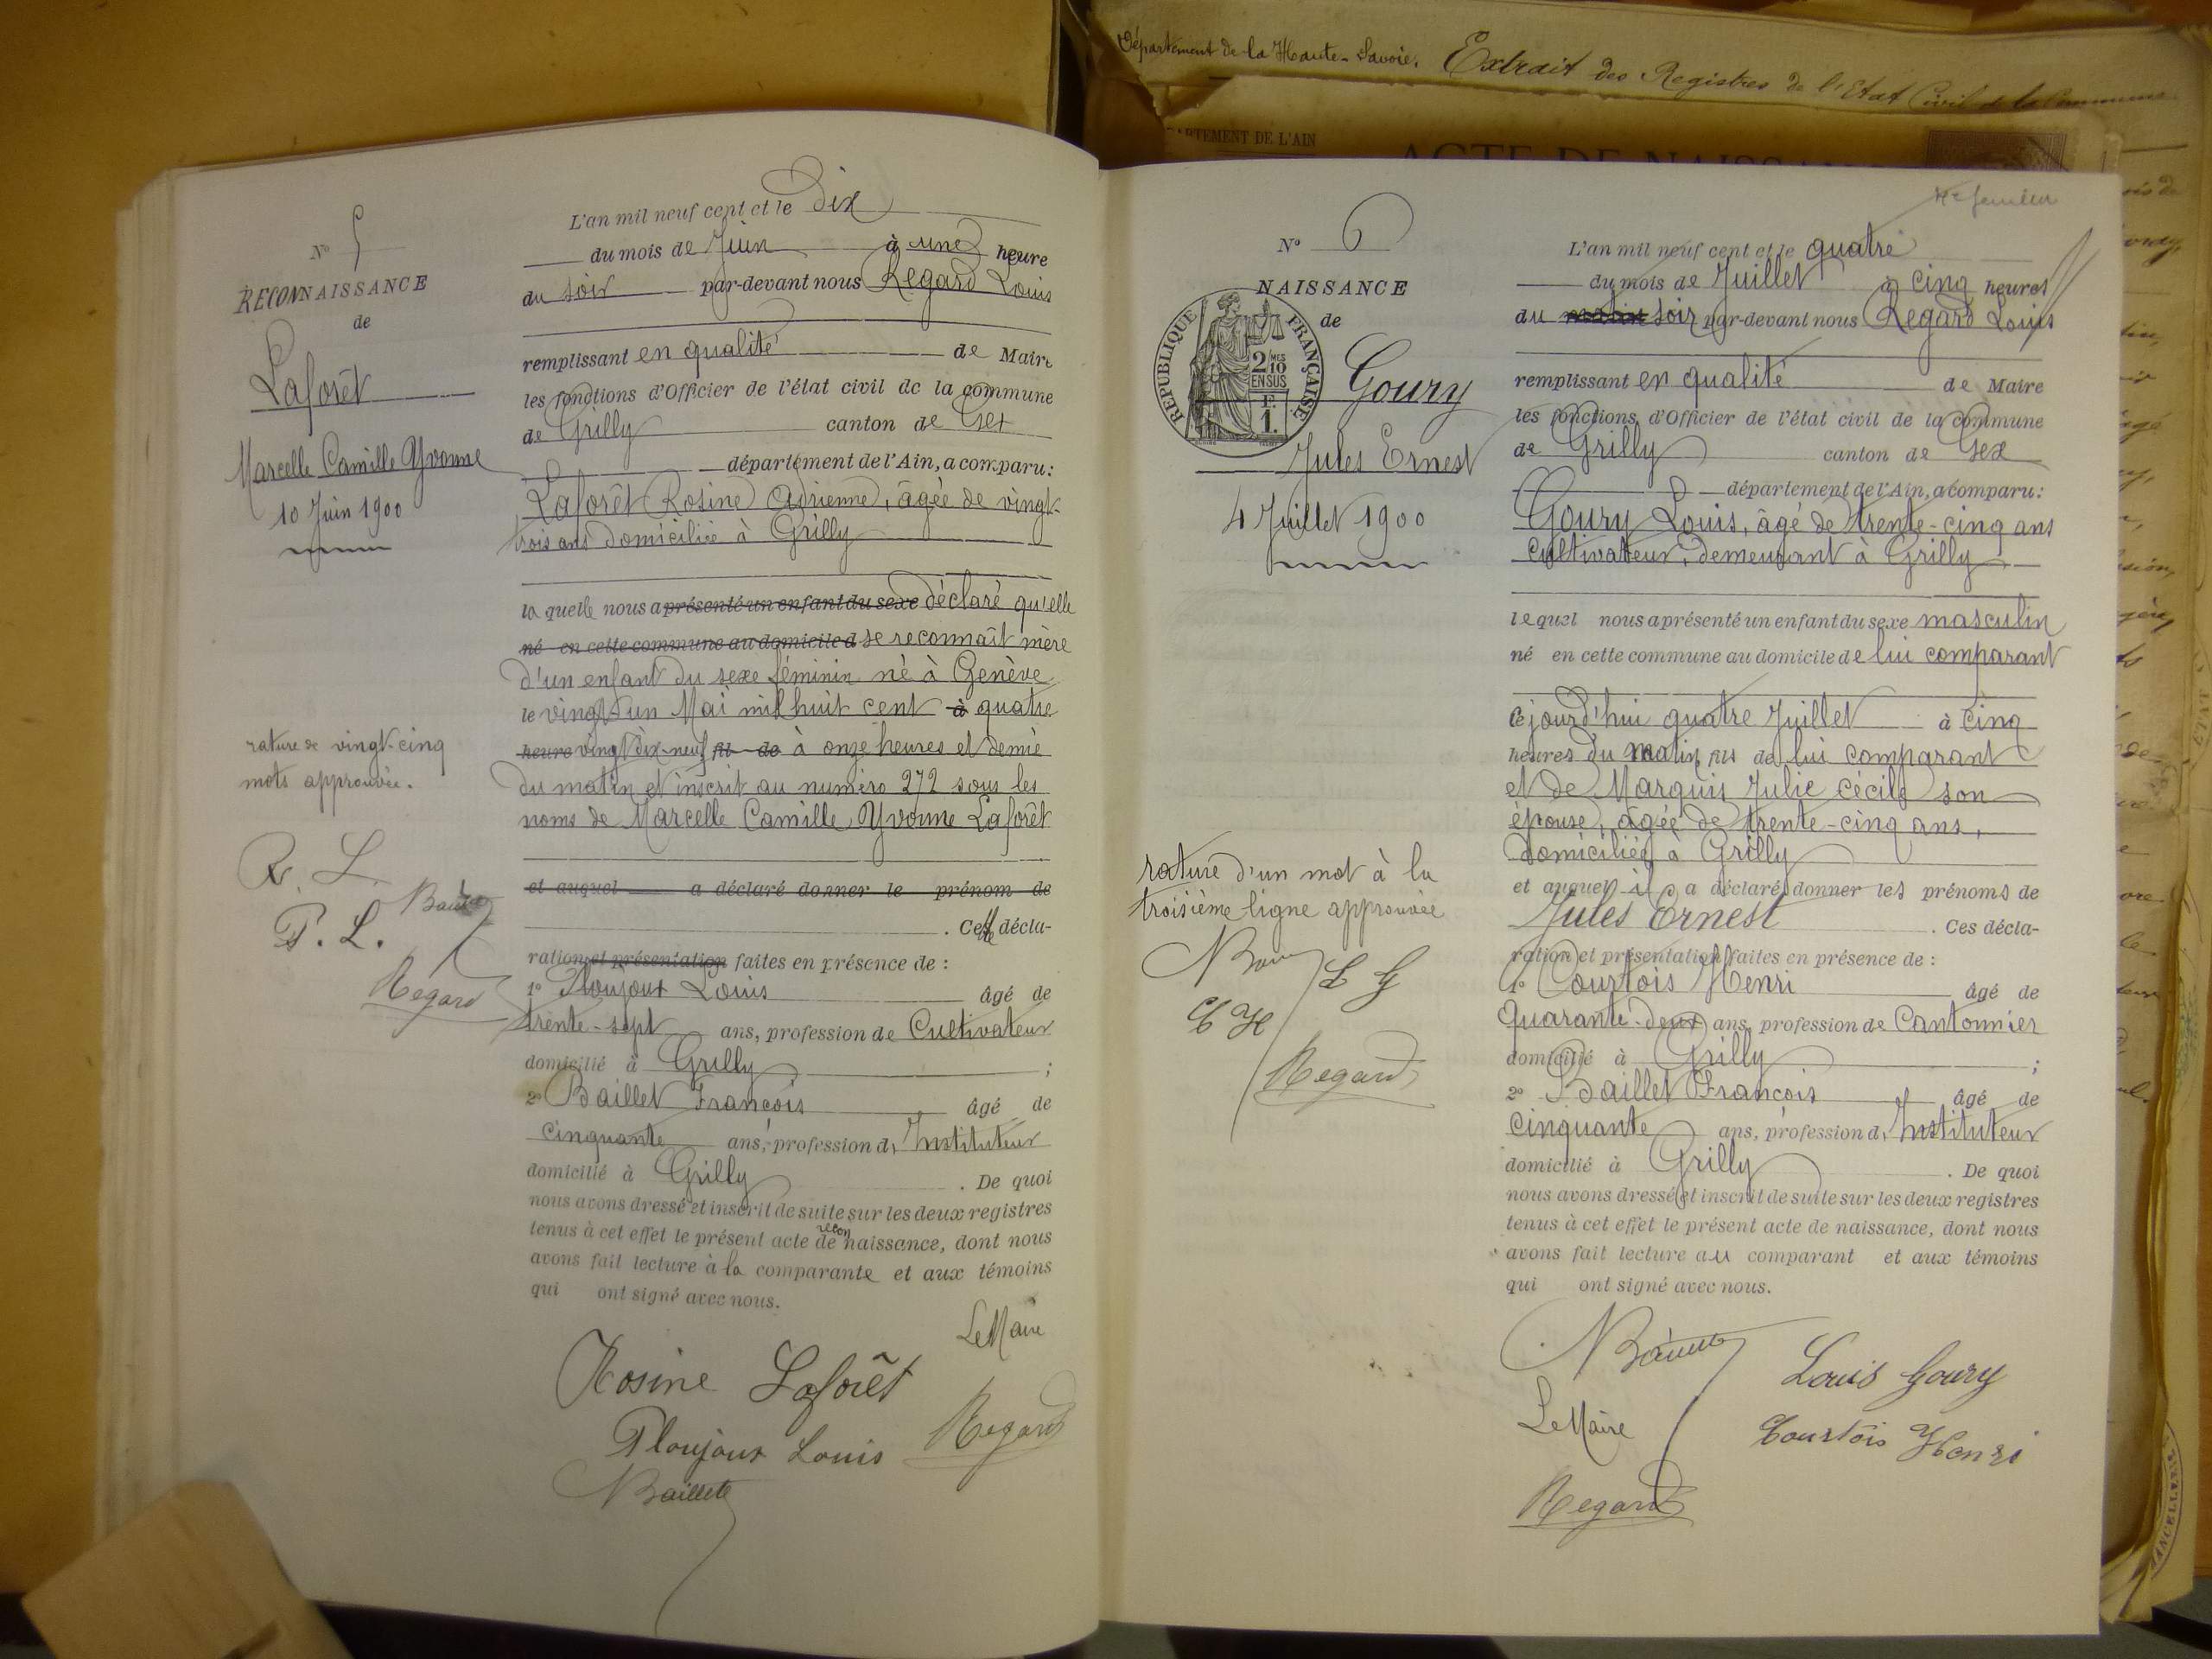 Département de la Haute-Savoie. Extrait des Registres de l'Etat Civil de la Commune
DÉPARTEMENT DE L'AIN
ACTE DE NAISSANCE
N° 5
RECONNAISSANCE
de
Laforêt
Marcelle Camille Yvonne
10 Juin 1900
rature de vingt-cinq
mots approuvée.
R. L.
P. L.
Regard
L'an mil neuf cent et le Dix
du mois de Juin à une heure
du soir par-devant nous Regard Louis
remplissant en qualité de Maire
les fonctions d'Officier de l'état civil de la commune
de Grilly canton de Gex
département de l'Ain, a comparu:
Laforêt Rosine Adrienne, âgée de vingt-
trois ans domiciliée à Grilly
la quelle nous a présenté un enfant du sexe déclaré qu'elle
né en cette commune au domicile d se reconnaît mère
d'un enfant du sexe féminin né à Genève
le vingt un Mai mil huit cent à quatre
heure vingt dix-neuf fil de à onze heures et demie
du matin et inscrit au numéro 272 sous les
noms de Marcelle Camille Yvonne Laforêt
et auquel a déclaré donner le prénom de
. Cette décla-
ration et présentation faites en présence de :
1° Ploujoux Louis âgé de
trente-sept ans, profession de Cultivateur
domicilié à Grilly ;
2° Baillet François âgé de
Cinquante ans, profession d' Instituteur
domicilié à Grilly . De quoi
nous avons dressé et inscrit de suite sur les deux registres
recon
tenus à cet effet le présent acte de naissance, dont nous
avons fait lecture à la comparante et aux témoins
qui ont signé avec nous.
Le Maire
Rosine Laforêt
Regard
Ploujoux Louis
Baillet
N° 6
NAISSANCE
de
RÉPUBLIQUE FRANÇAISE
2/10 EN SUS
F. 1.
Goury
Jules Ernest
4 Juillet 1900
rature d'un mot à la
troisième ligne approuvée
L G
C H
Regard
L'an mil neuf cent et le quatre
du mois de Juillet à cinq heures
du matin soir par-devant nous Regard Louis
remplissant en qualité de Maire
les fonctions d'Officier de l'état civil de la commune
de Grilly canton de Gex
département de l'Ain, a comparu:
Goury Louis, âgé de trente-cinq ans
Cultivateur, demeurant à Grilly
le quel nous a présenté un enfant du sexe masculin
né en cette commune au domicile de lui comparant
ce jourd'hui quatre Juillet à cinq
heures du matin fils de lui comparant
et de Marquis Julie Cécile son
épouse, âgée de trente-cinq ans,
domiciliée à Grilly
et auquel il a déclaré donner les prénoms de
Jules Ernest . Ces décla-
ration et présentation faites en présence de :
1° Courtois Henri âgé de
Quarante-deux ans, profession de Cantonnier
domicilié à Grilly ;
2° Baillet François âgé de
Cinquante ans, profession d' Instituteur
domicilié à Grilly . De quoi
nous avons dressé et inscrit de suite sur les deux registres
tenus à cet effet le présent acte de naissance, dont nous
avons fait lecture au comparant et aux témoins
qui ont signé avec nous.
Louis Goury
Le Maire
Courtois Henri
Regard